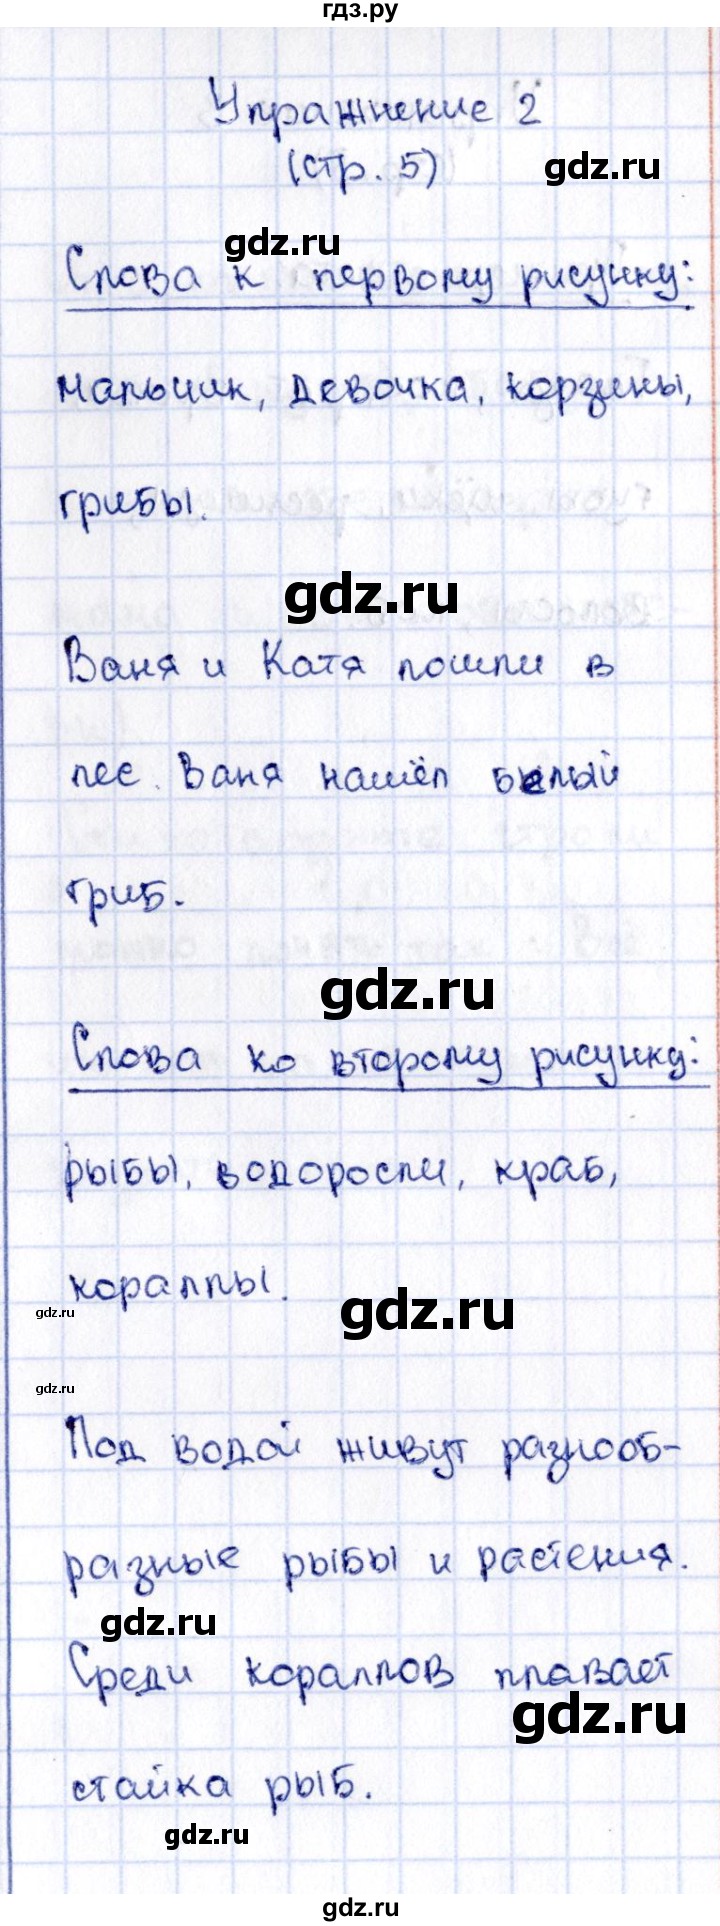 гдз.ру
Упражнение 2
(стр. 5)
gdz.ru
gdz.ru
Слова к первому рисунку:
мальчик, девочка, корзины,
грибы.
gdz.ru
Ваня и Катя пошли в
лес. Ваня нашёл белый
гриб.
gdz.ru
Слова ко второму рисунку:
рыбы, водоросли, краб,
кораллы.
gdz.ru
gdz.ru
gdz.ru
Под водой живут разнооб-
разные рыбы и растения.
gdz.ru
Среди кораллов плавает
gdz.ru
стайка рыб.
gdz.ru
gdz.ru